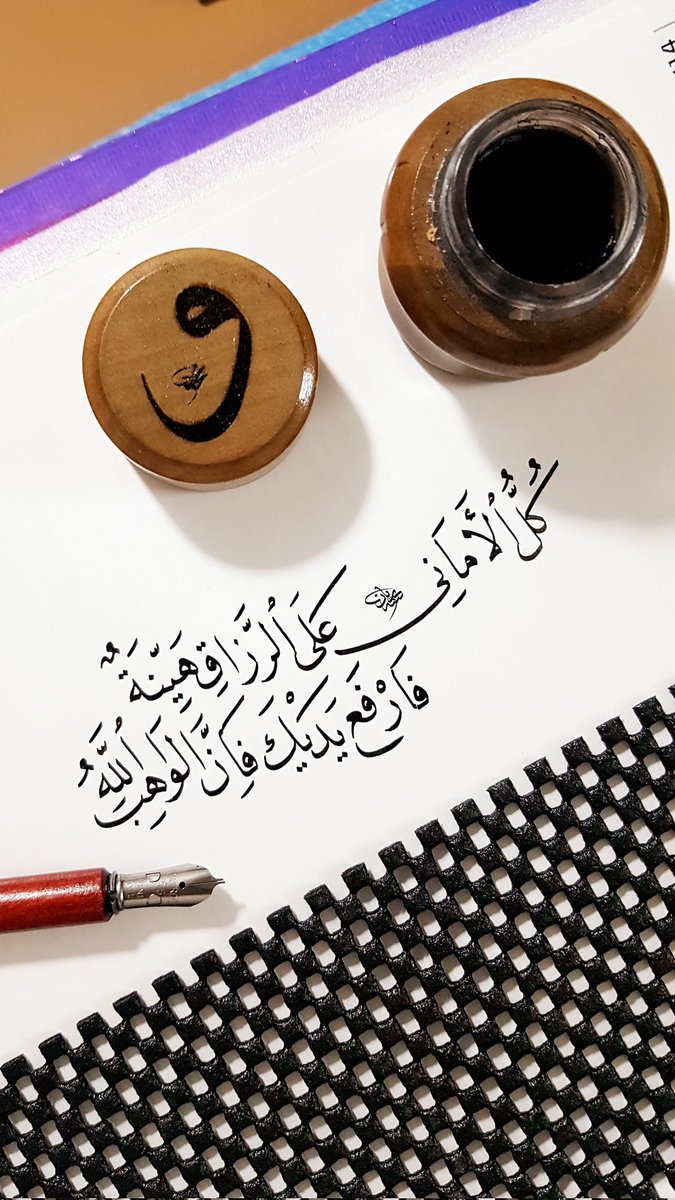 و
كُلُّ الْأَمَانِي عَلَى الرَّزَّاقِ هَيِّنَةٌ
فَارْفَعْ يَدَيْكَ فَإِنَّ الْوَاهِبَ اللّٰهُ